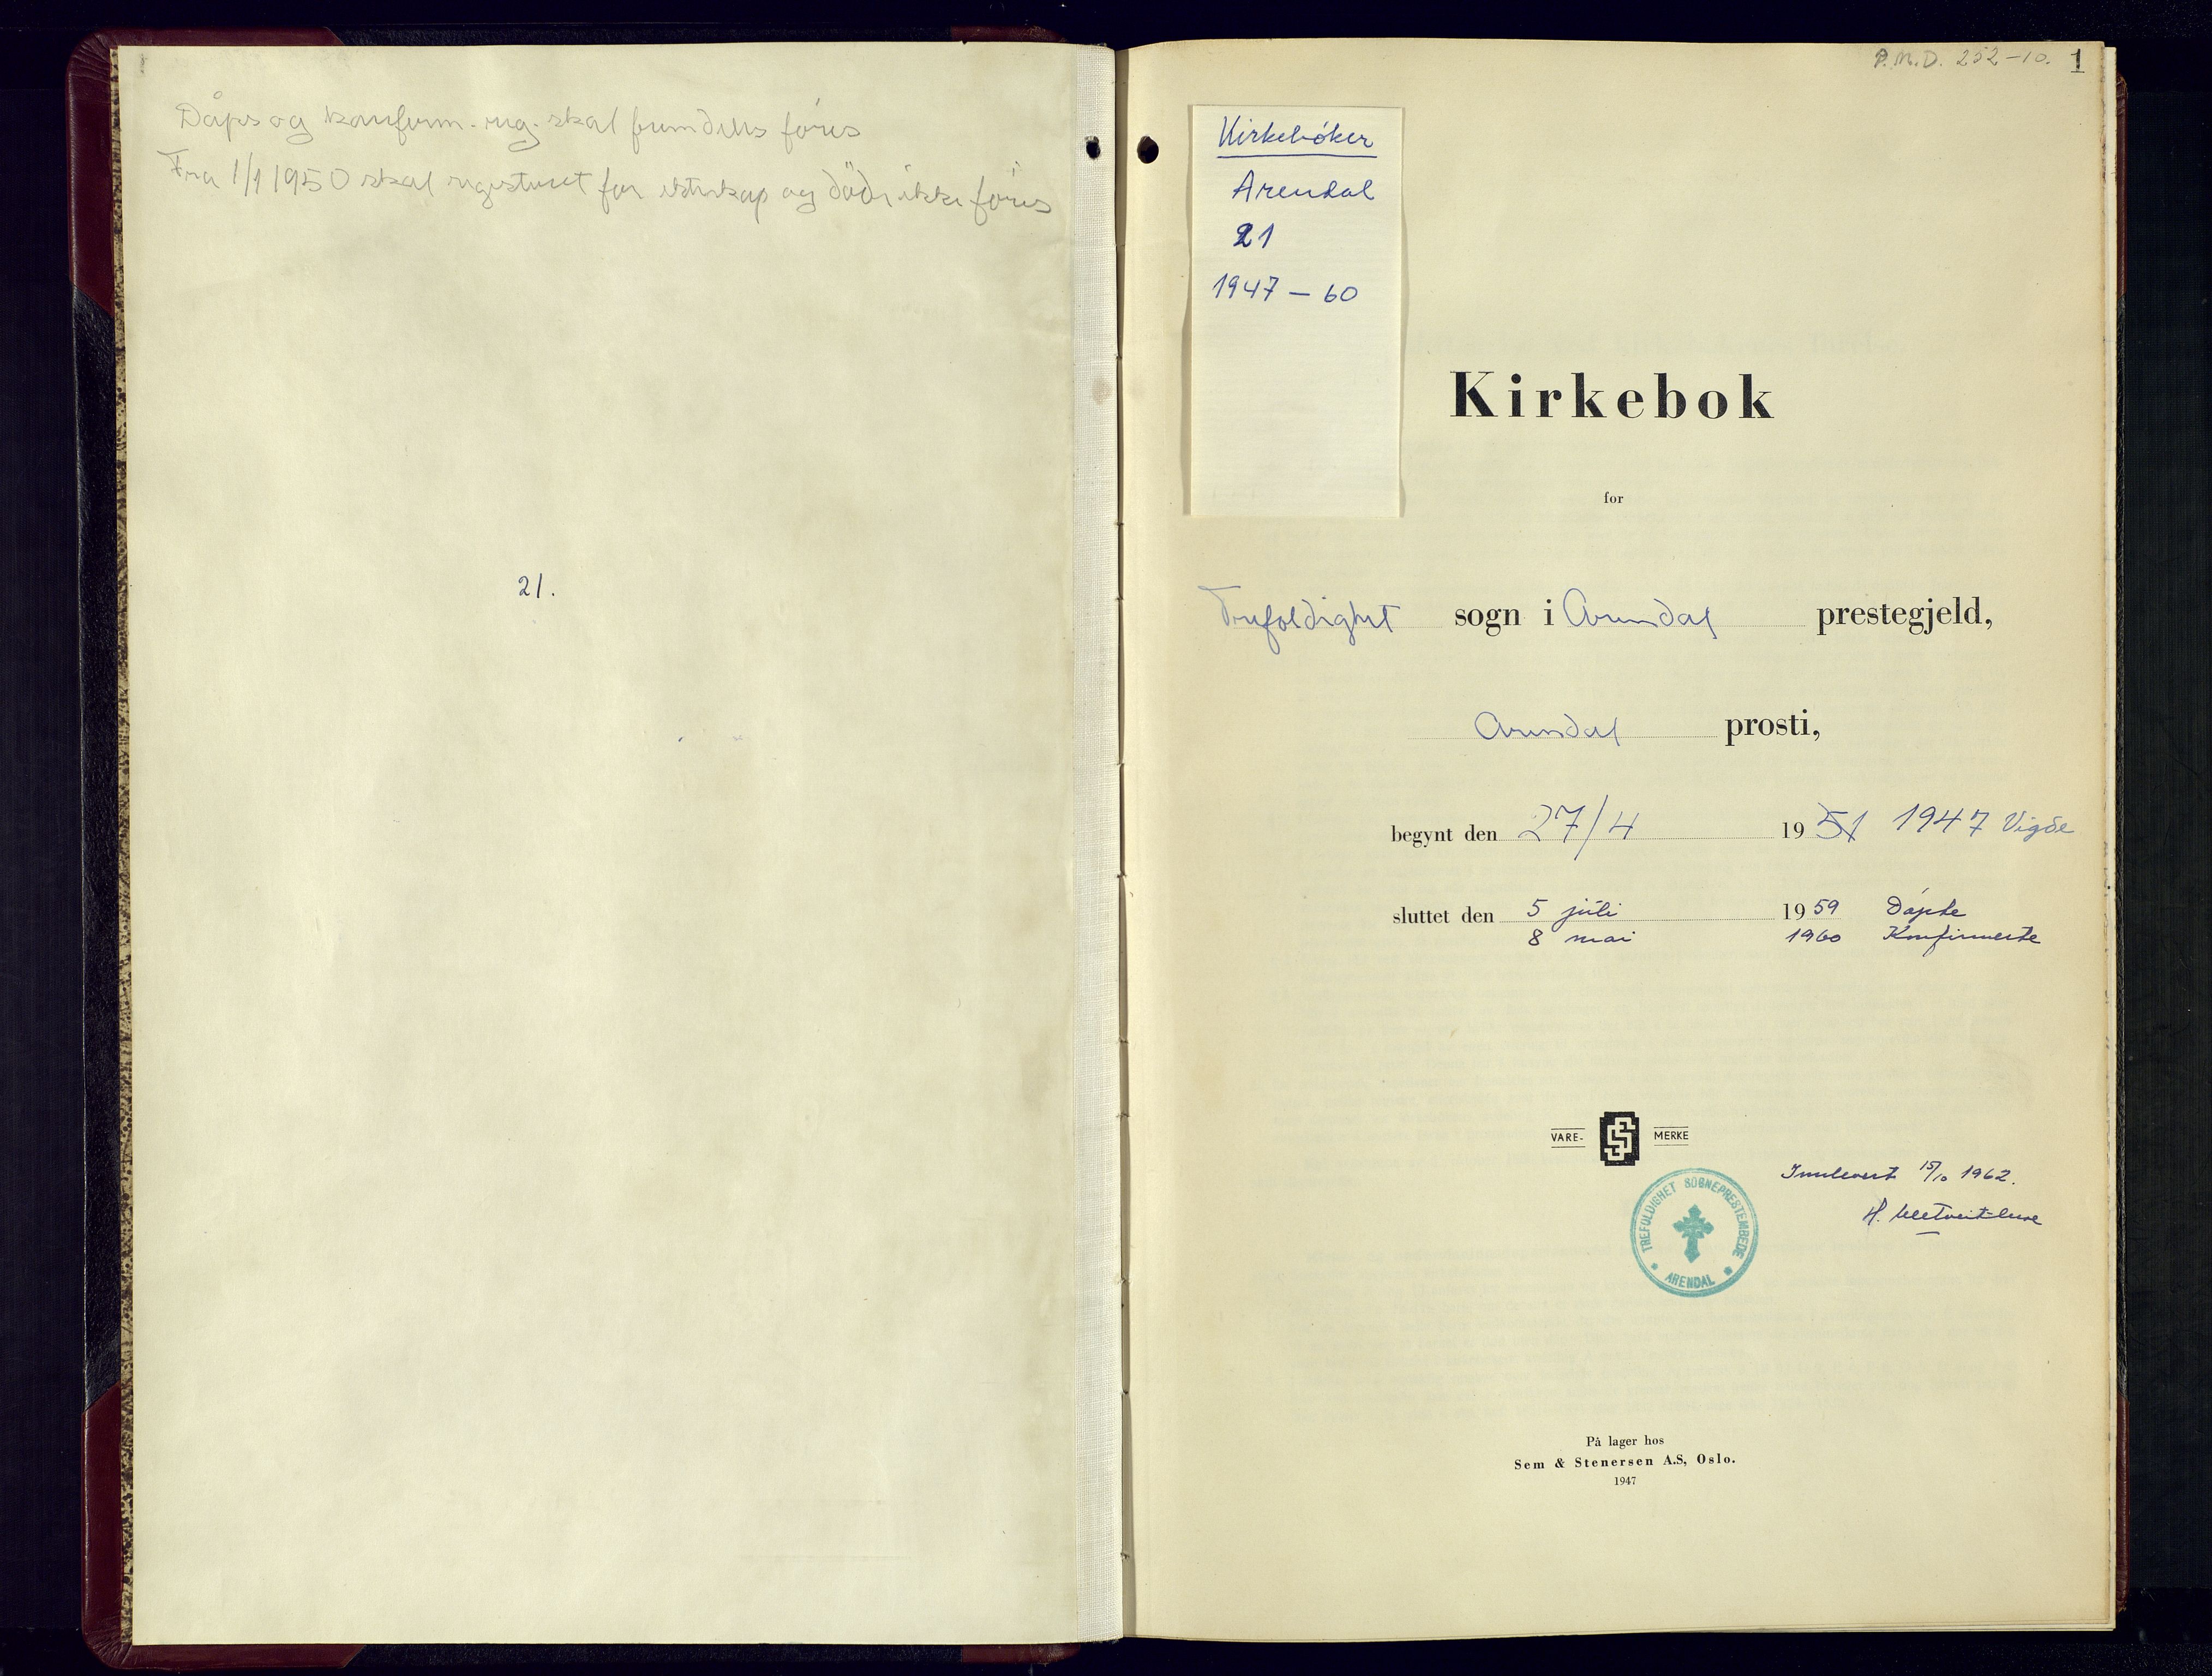 Dåps og konfirm. reg. skal fremdeles føres
Fra 1/1 1950 skal registeret for ekteskap og døde ikke føres
21.
P.M.D. 252-10. 1
Kirkebóker
Arendal
21
1947 - 60
Kirkebok
for
Trefoldighet sogn i Arendal prestegjeld,
Arendal prosti,
begynt den 27/4 1951 1947 Vigde
sluttet den 5 júli 1959 Dåpte
8 mai 1960 Konfirmerte
VARE- SS MERKE
Innlevert 15/10 1962.
H.
TREFOLDIGHET SOGNEPRESTEMBEDE
* ARENDAL *
På lager hos
Sem & Stenersen A.S, Oslo.
1947